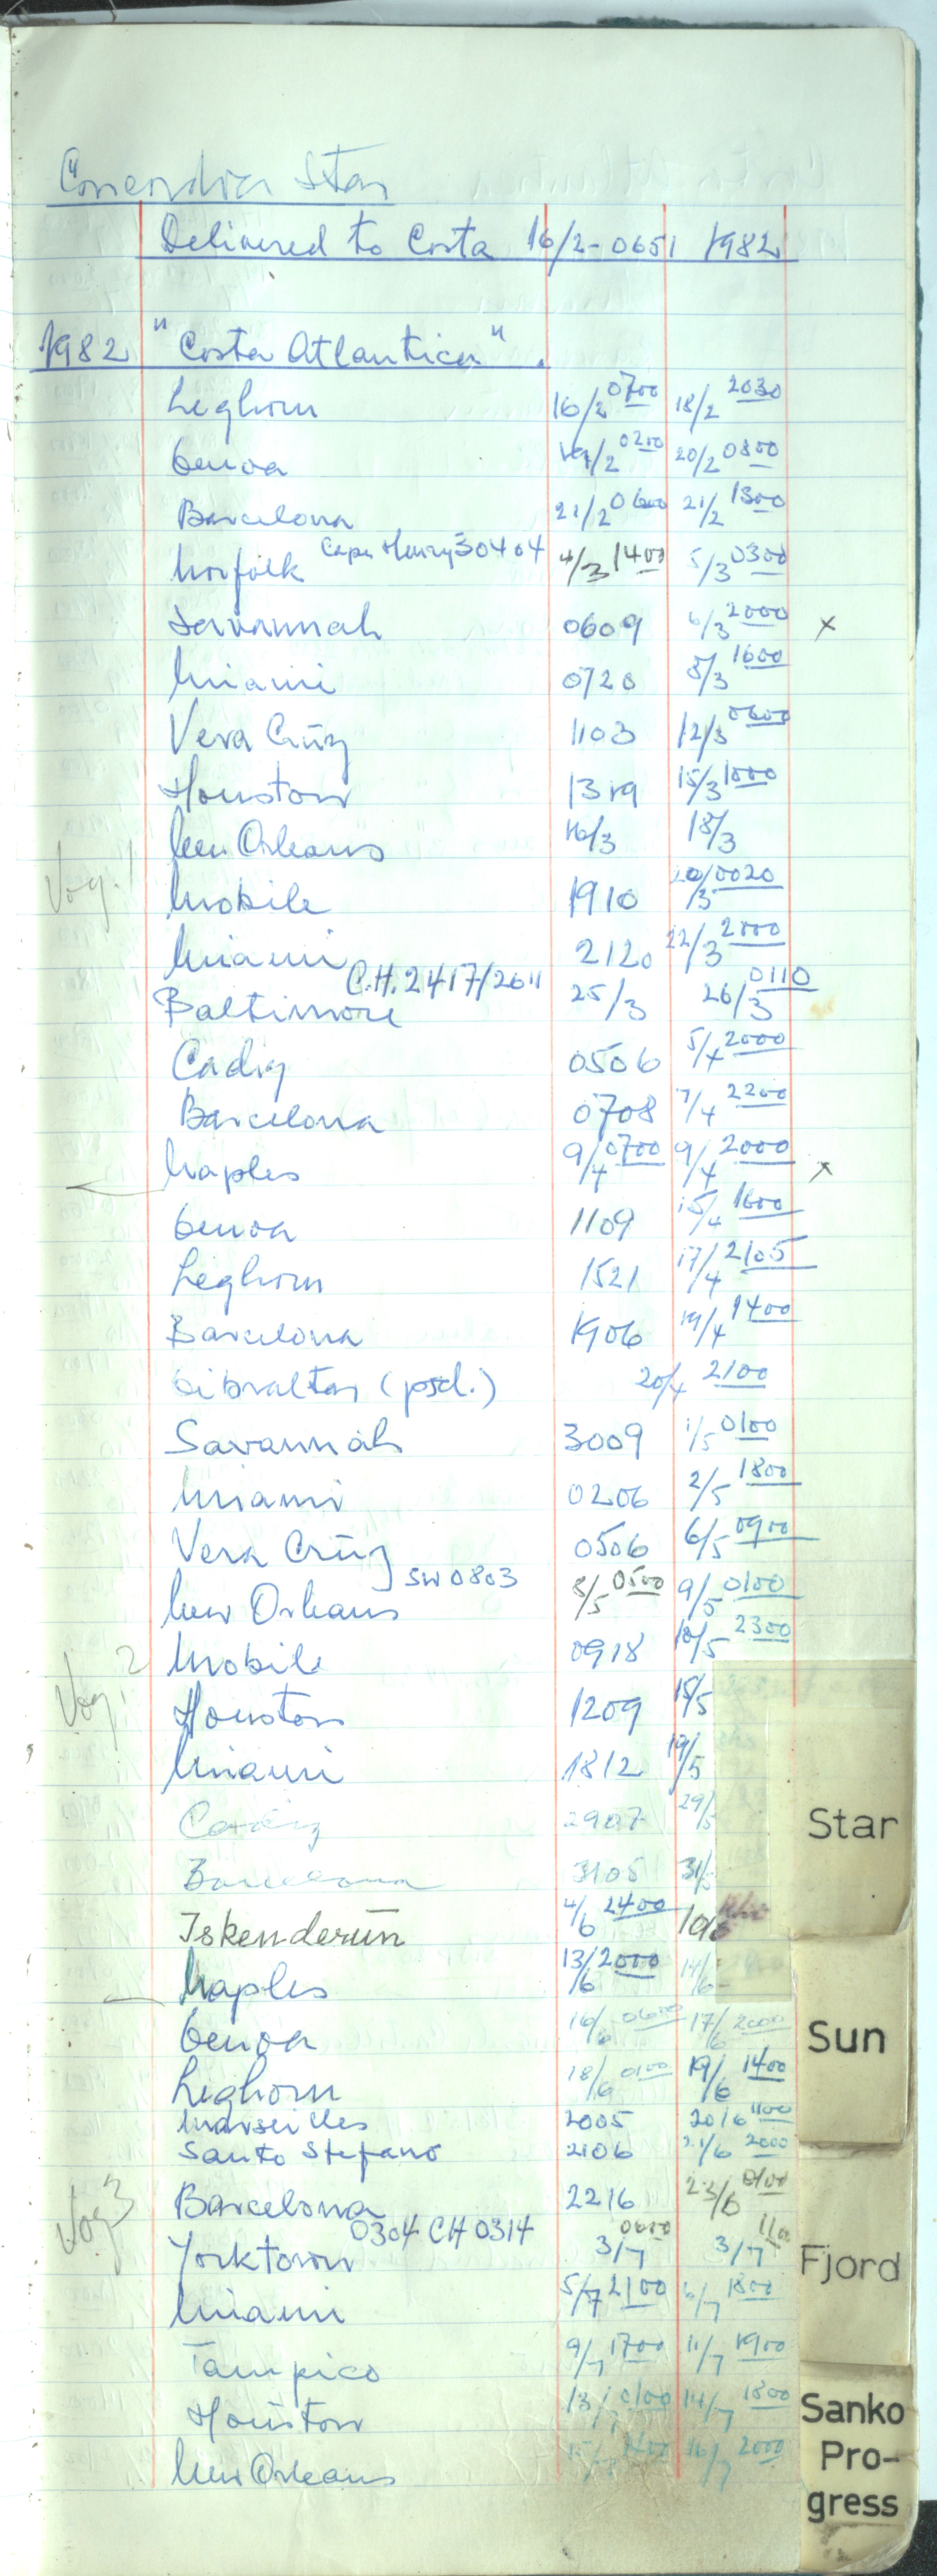 Concordia Star
Delivered to Costa 16/2-0651 1982
1982 "Costa Atlantica".
Leghorn 16/2 0700 18/2 2030
Genoa 19/2 0200 20/2 0800
Barcelona 21/2 0600 21/2 1300
Norfolk Cape Henry 30404 4/3 1400 5/3 0300
Savannah 0609 6/3 2000 x
Miami 0720 8/3 1600
Vera Crūz 1103 12/3 0600
Houston 1319 15/3 1000
New Orleans 16/3 18/3
Voy. 1
Mobile 1910 20/3 0020
Miami 2120 22/3 2000
Baltimore C.H. 2417/2611 25/3 26/3 0110
Cadiz 0506 5/4 2000
Barcelona 0708 7/4 2200
Naples 9/4 0700 9/4 2000 x
Genoa 1109 15/4 1600
Leghorn 1521 17/4 2105
Barcelona 1906 19/4 1400
Gibraltar (psd.) 20/4 2100
Savannah 3009 1/5 0100
Miami 0206 2/5 1800
Vera Crūz 0506 6/5 0900
New Orleans SW 0803 8/5 0500 9/5 0100
Mobile 0918 10/5 2300
Voy. 2
Houston 1209 15/5
Miami 1812 19/5
Cadiz 2907 29/5
Barcelona 3105 31/5
Iskenderūn 4/6 2400 10/6
Naples 13/6 2000 14/6
Genoa 16/6 0600 17/6 2000
Leghorn 18/6 0100 19/6 1400
Marseilles 2005 20/6 1100
Santo Stefano 2106 21/6 2000
Barcelona 2216 23/6 0100
Voy 3
Yorktown 0304 CH 0314 3/7 0600 3/7 1100
Miami 5/7 2100 6/7 1800
Tampico 9/7 1700 11/7 1900
Hoūston 13/7 0100 14/7 1800
New Orleans 16/7 2000
Star
Sun
Fjord
Sanko
Pro-
gress